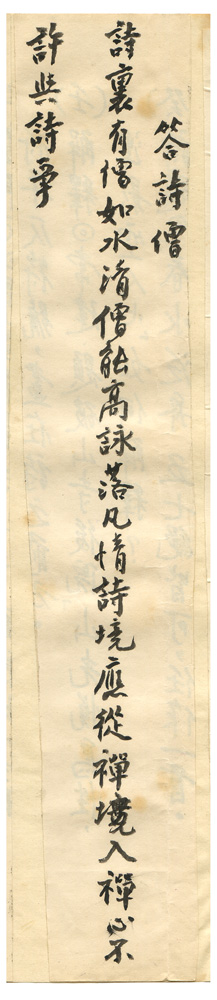 答詩僧
詩裏有僧如水清僧能高詠落凡情詩境應從禪境入禪心不
許與詩爭